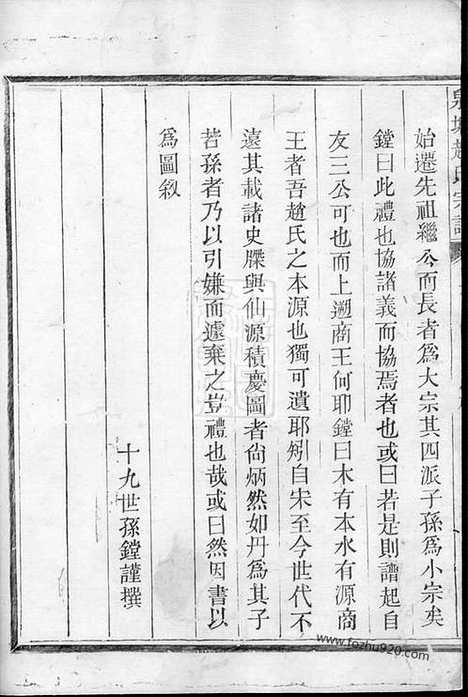 趙氏宗譜
始遷先祖繼公而長者為大宗其四派子孫為小宗矣
鏜曰此禮也協諸義而協焉者也或曰若是則譜起自
友三公可也而上遡商王何耶鏜曰木有本水有源商
王者吾趙氏之本源也獨可遺耶矧自宋至今世代不
遠其載諸史牒與仙源積慶圖者尙炳然如丹為其子
若孫者乃以引嫌而遽棄之豈禮也哉或曰然因書以
為圖敘
十九世孫鏜謹撰
www.fozhu920.com